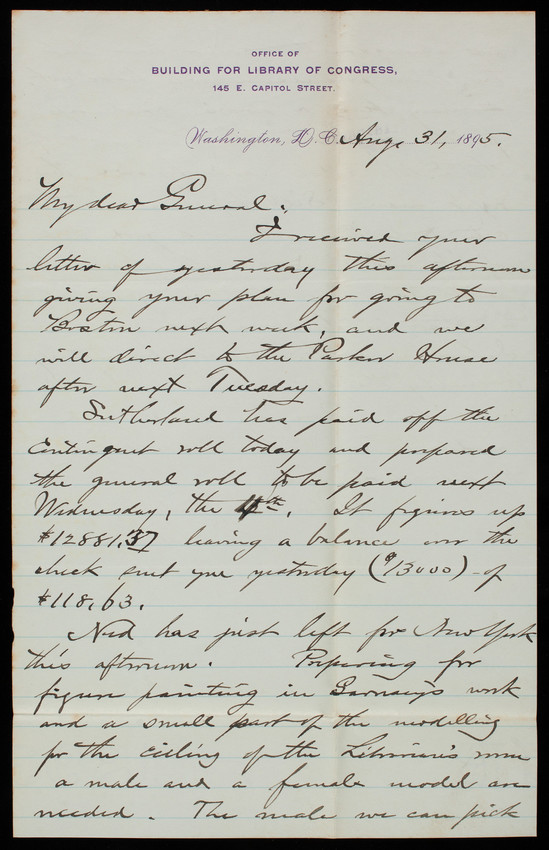 OFFICE OF
BUILDING FOR LIBRARY OF CONGRESS,
145 E. CAPITOL STREET.
Washington, D.C. Aug. 31, 1895.
My dear General:
I received your
letter of yesterday this afternoon
giving your plan for going to
Boston next week, and we
will direct to the Parker House
after next Tuesday.
Sutherland has paid off the
Contingent roll today and prepared
the general roll to be paid next
Wednesday, the 4th. It figures up
$12881.37 leaving a balance over the
check sent you yesterday ($13000) of
$118.63.
Ned has just left for New York
this afternoon. Preparing for
figure painting in Garnsey's work
and a small part of the modelling
for the ceiling of the Librarian's room
a male and a female model are
needed. The male we can pick